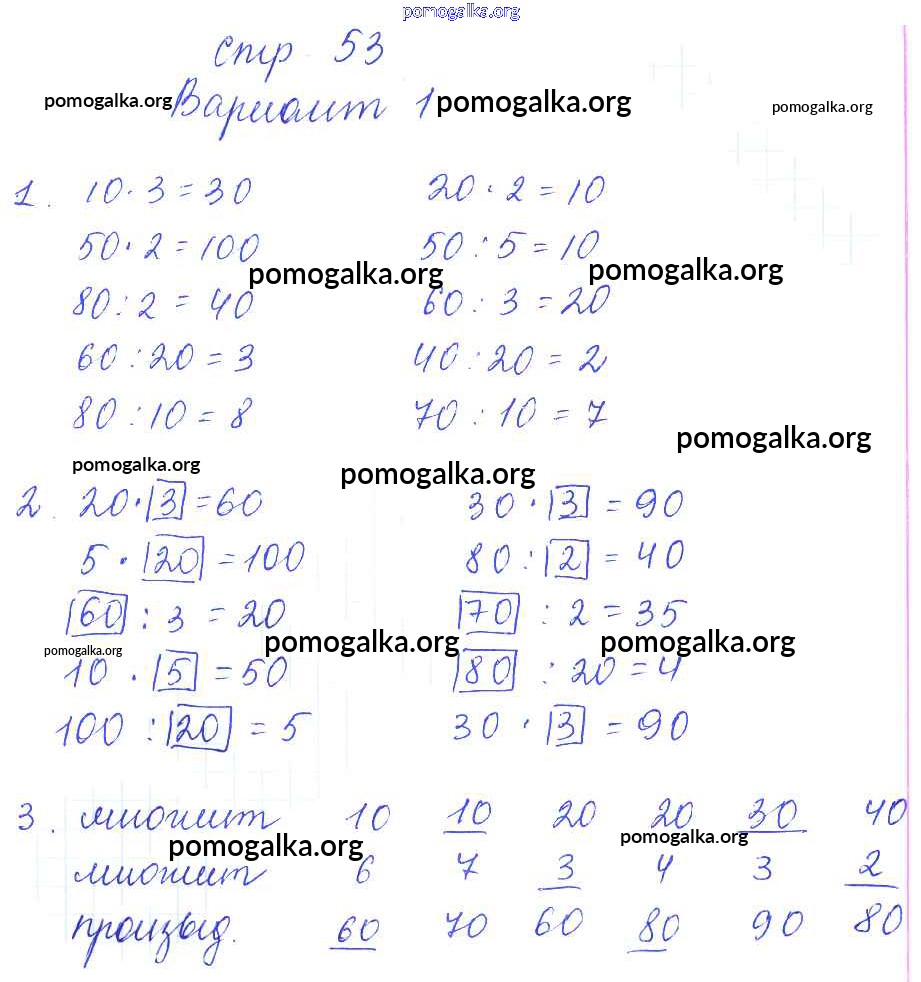 pomogalka.org
стр 53
pomogalka.org Вариант 1 pomogalka.org pomogalka.org
1. 10·3=30 20·2=10
50·2=100 50:5=10
pomogalka.org pomogalka.org
80:2=40 60:3=20
60:20=3 40:20=2
80:10=8 70:10=7
pomogalka.org
pomogalka.org pomogalka.org
2. 20·3=60 30·3=90
5·20=100 80:2=40
60:3=20 70:2=35
pomogalka.org pomogalka.org pomogalka.org
10·5=50 80:20=4
100:20=5 30·3=90
3. множит 10 10 20 20 30 40
pomogalka.org pomogalka.org
множит 6 7 3 4 3 2
произвд. 60 70 60 80 90 80